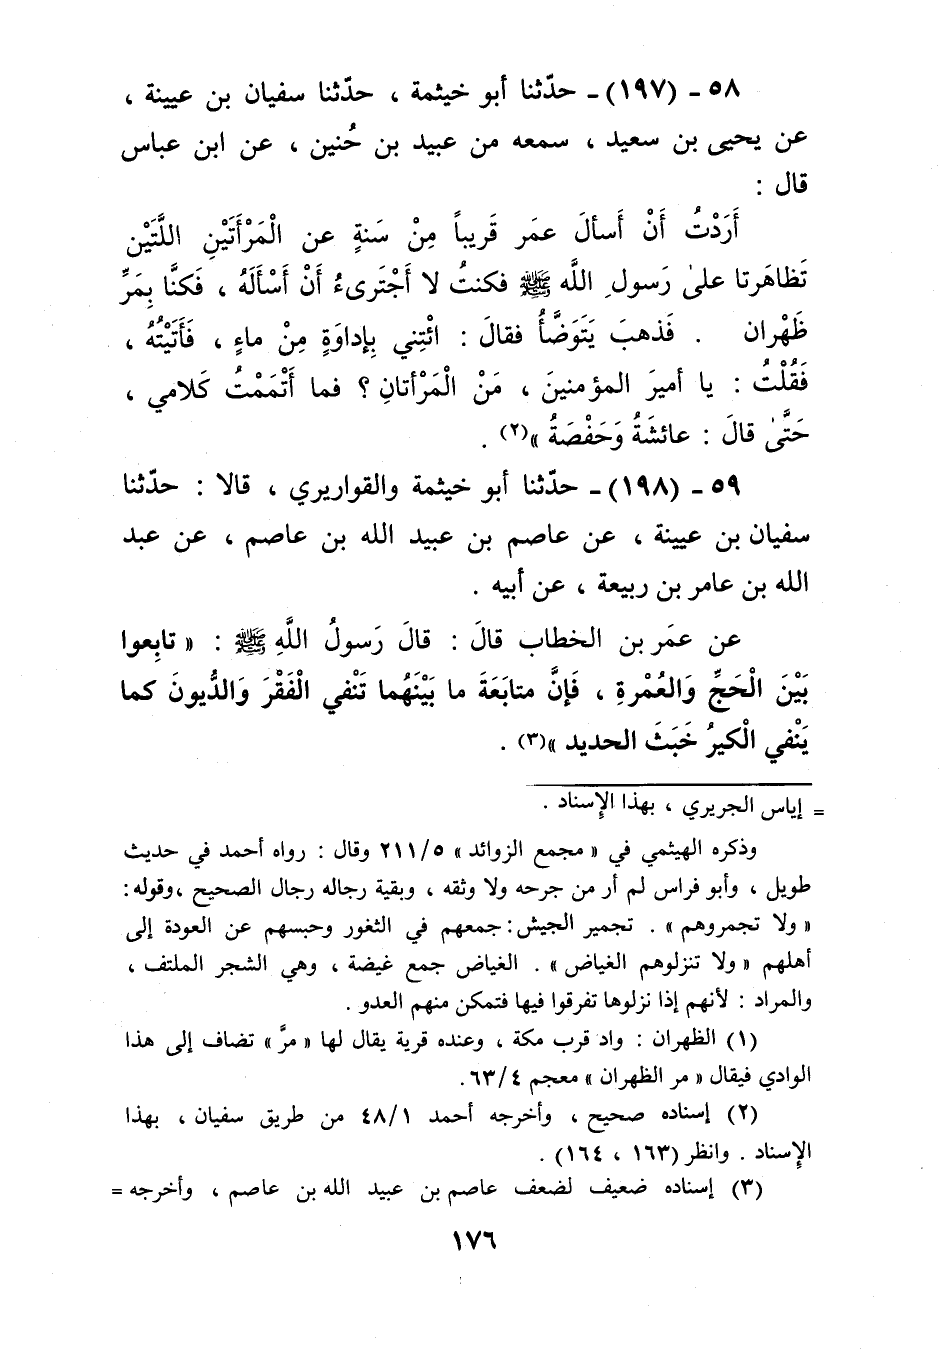 ٥٨ - (١٩٧) - حدّثنا أبو خيثمة ، حدّثنا سفيان بن عيينة ،
عن يحيى بن سعيد ، سمعه من عبيد بن حُنين ، عن ابن عباس
قال :
أَرَدْتُ أَنْ أَسألَ عمَر قَريباً مِنْ سَنةٍ عن الْمَرْأَتَيْنِ اللَّتَيْن
تَظاهَرتا علىٰ رَسولِ اللَّه ﷺ فكنتُ لا أَجْتَرىءُ أَنْ أَسْأَلَهُ ، فَكنَّا بِمَرِّ
ظَهْران . فَذهبَ يَتَوَضَّأُ فقالَ : ائْتِني بِإداوَةٍ مِنْ ماءٍ ، فَأَتَيْتُهُ ،
فَقُلْتُ : يا أميرَ المؤمنينَ ، مَنْ الْمَرْأتانِ ؟ فما أَتْمَمْتُ كَلامي ،
حَتَّىٰ قالَ : عائشَةُ وَحَفْصَةُ »(٢) .
٥٩ - (١٩٨) - حدّثنا أبو خيثمة والقواريري ، قالا : حدّثنا
سفيان بن عيينة ، عن عاصم بن عبيد الله بن عاصم ، عن عبد
الله بن عامر بن ربيعة ، عن أبيه .
عن عمَر بن الخطاب قالَ : قالَ رَسولُ اللَّهِ ﷺ : « تابِعوا
بَيْنَ الْحَجِّ وَالعُمْرةِ ، فَإنَّ متابَعَةَ ما بَيْنَهُما تَنْفي الْفَقْرَ وَالدُّيونَ كما
يَنْفي الْكيرُ خَبَثَ الحديد »(٣) .
= إياس الجريري ، بهذا الإسناد .
وذكره الهيثمي في « مجمع الزوائد » ٢١١/٥ وقال : رواه أحمد في حديث
طويل ، وأبو فراس لم أر من جرحه ولا وثقه ، وبقية رجاله رجال الصحيح ،وقوله :
« ولا تجمروهم » . تجمير الجيش : جمعهم في الثغور وحبسهم عن العودة إلى
أهلهم « ولا تنزلوهم الغياض » . الغياض جمع غيضة ، وهي الشجر الملتف ،
والمراد : لأنهم إذا نزلوها تفرقوا فيها فتمكن منهم العدو .
(١) الظهران : واد قرب مكة ، وعنده قرية يقال لها « مرَّ » تضاف إلى هذا
الوادي فيقال « مر الظهران » معجم ٦٣/٤.
(٢) إسناده صحيح ، وأخرجه أحمد ٤٨/١ من طريق سفيان ، بهذا
الإسناد . وانظر (١٦٣ ، ١٦٤) .
(٣) إسناده ضعيف لضعف عاصم بن عبيد الله بن عاصم ، وأخرجه =
١٧٦